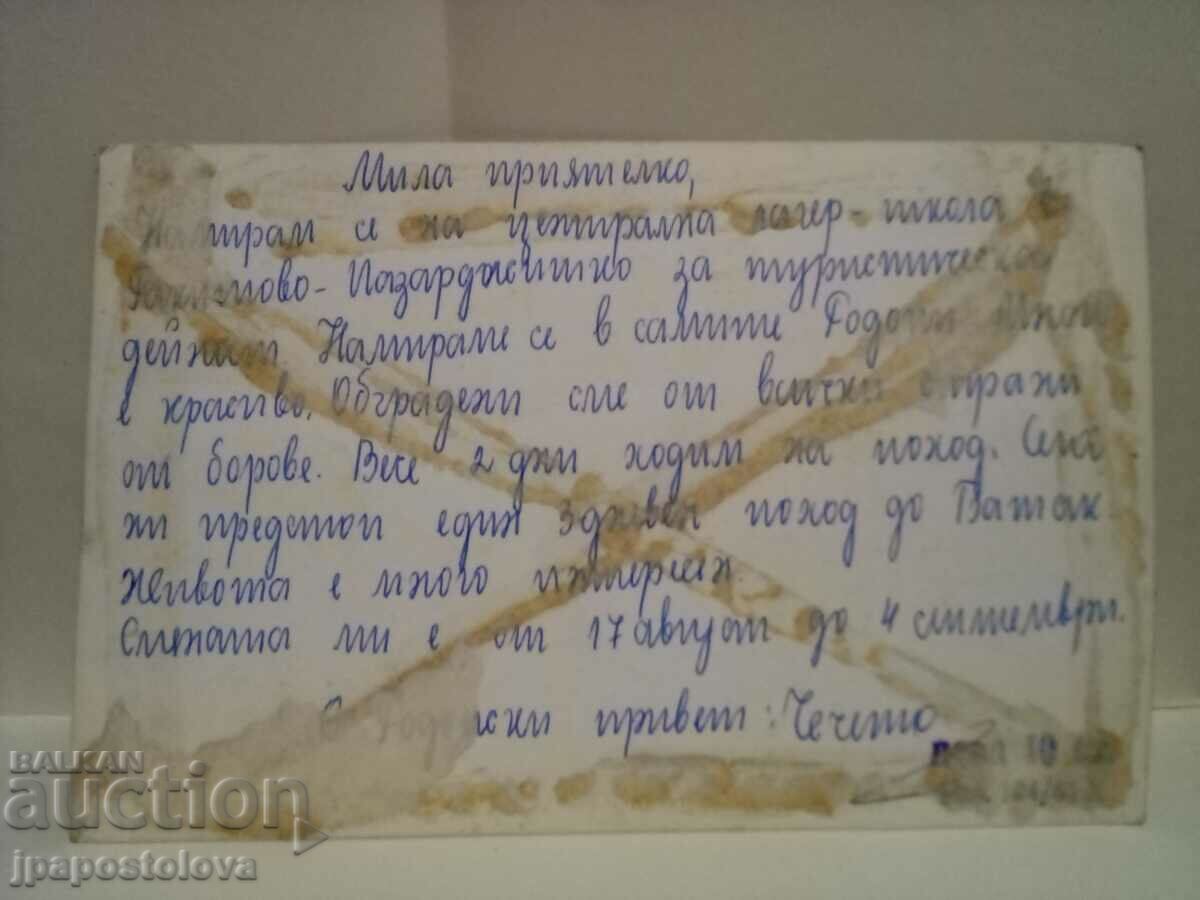 Мила приятелко,
Намирам се на централна лагер-школа в
Ракитово - Пазарджишко за туристическа
дейност. Намираме се в самите Родопи. Много
е красиво. Обградени сме от всички страни
от борове. Вече 2 дни ходим на поход. Сега
ни предстои един 3 дневен поход до Батак.
Живота е много интересен.
Смената ми е от 17 август до 4 септември.
С Родопски привет: Чечето
BALKAN
auction
jpapostolova